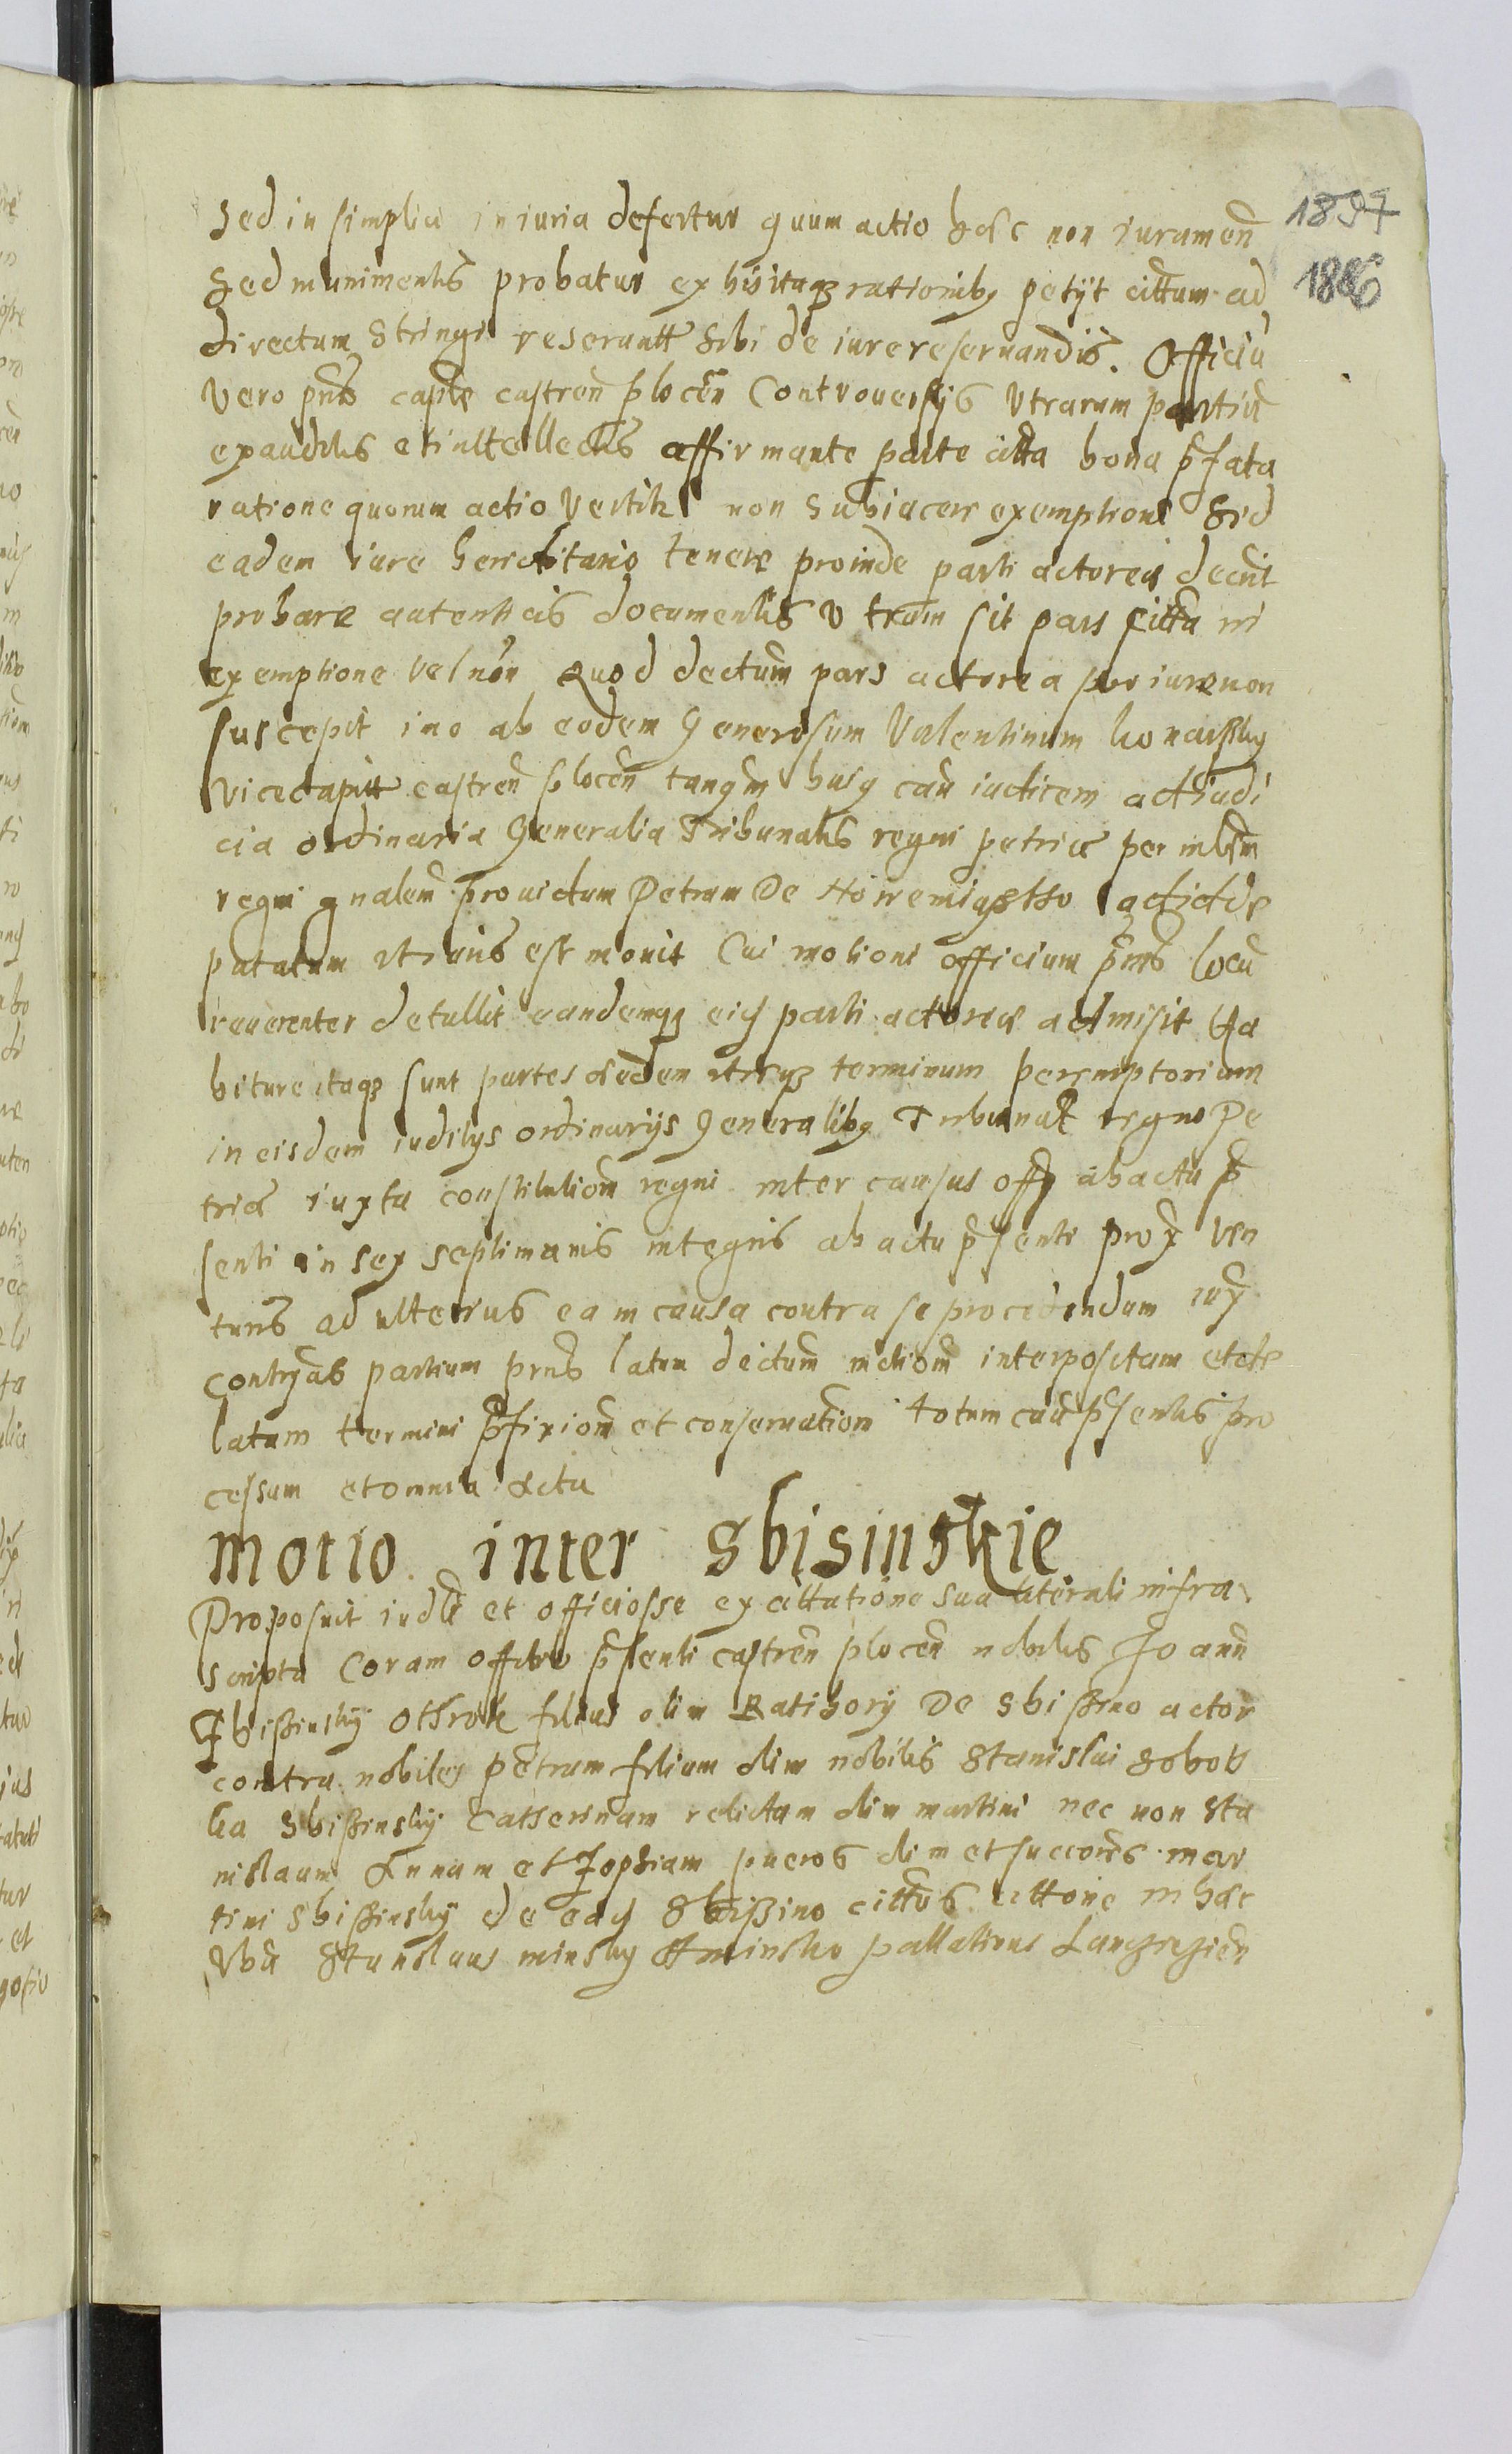 1897
1886
Sed in simplici iniuria defertur quum actio haec non iuramen̄
Sed munimentis probatur ex hisitaqȝ rationibȝ petijt cittatum ad
directum Stringi reseruatt Sibi de iure reseruandis. Officiū
Vero pn̄s capite castren̄ plocen̄ Controuersijs Utrarum partiū
exauditis et inttellectis affirmante parte citta bona p̄fata
ratione quorum actio Vertitr non Subiacere exemptioni Sed
eadem iure hereditario tenere proinde parti actoreae decrit
probare autenticis documentis Utrum sit pars citta in
exemptione Vel non Quod dectum pars actorea pro iure non
suscepit imo ab eodem Generosum Valentinum
Vicecapitt castren̄ plocen̄ tanqm huiȝ cau iudicem ad iudi
cia ordinaria Generalia Tribunalis regni petricē per
regni gnalem prouictum Petrum De ad
patatum est mouit Cui motioni officium pn̄s locū
reuerenter detullit eandemqȝ eiȝ parti actoreae admisit Ha
biture itaqȝ sunt partes aedem utrqȝ terminum peremptorium
in eisdem iuditijs ordinarijs Generalibȝ Tribunal regni Pe
tricē iuxta constitutiom̄ regni inter causas offȝ ab actu p̄
senti in sex septimanis integris ab actu p̄senti prox̄ Ven
turis ad ulterius ea in causa contra se procedendum iux̄
contr̄as partium pn̄s latum dectum motiom̄ interpositam et de
latam termini p̄fixiom̄ et conseruatiom̄ totum cau p̄sentis pro
cessum et omnia Acta
Motio inter Sbisinskie
Proposuit iudlr et officiosse ex cittatione sua literali infra
scripta Coram officio p̄senti castren̄ plocen̄ nobilis Joann
Zbißinskij Othrok filius olim Ratibory De Sbißino actor
contra nobiles Petrum filium olim nobilis Stanislai Sobot
ka Sbißinskij Catherinam relictam olim martini nec non Sta
nislaum Annam et Zophiam pueros olim et succores mar
tini Sbißinskij de eaȝ Sbißino cittos cittone in haec
Vba Stanslaus minsky A minsko pallatinus Lanczicien̄